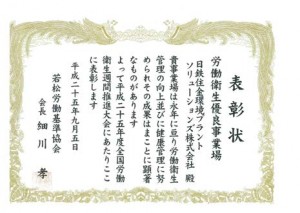 表彰状
労働衛生優良事業場
日鉄住金環境プラント
ソリューションズ株式会社 殿
貴事業場は永年に亘り労働衛生
管理の向上並びに健康管理に努
められその成果はまことに顕著
なものがあります
よって平成二十五年度全国労働
衛生週間推進大会にあたりここ
に表彰します
平成二十五年九月五日
若松労働基準協会
会長 細川 孝